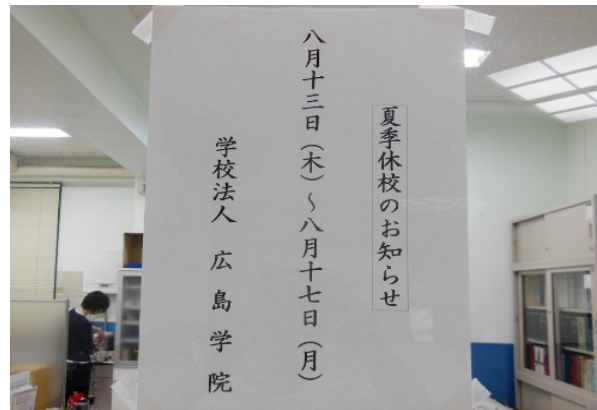 夏季休校のお知らせ
八月十三日（木）～八月十七日（月）
学校法人　広島学院